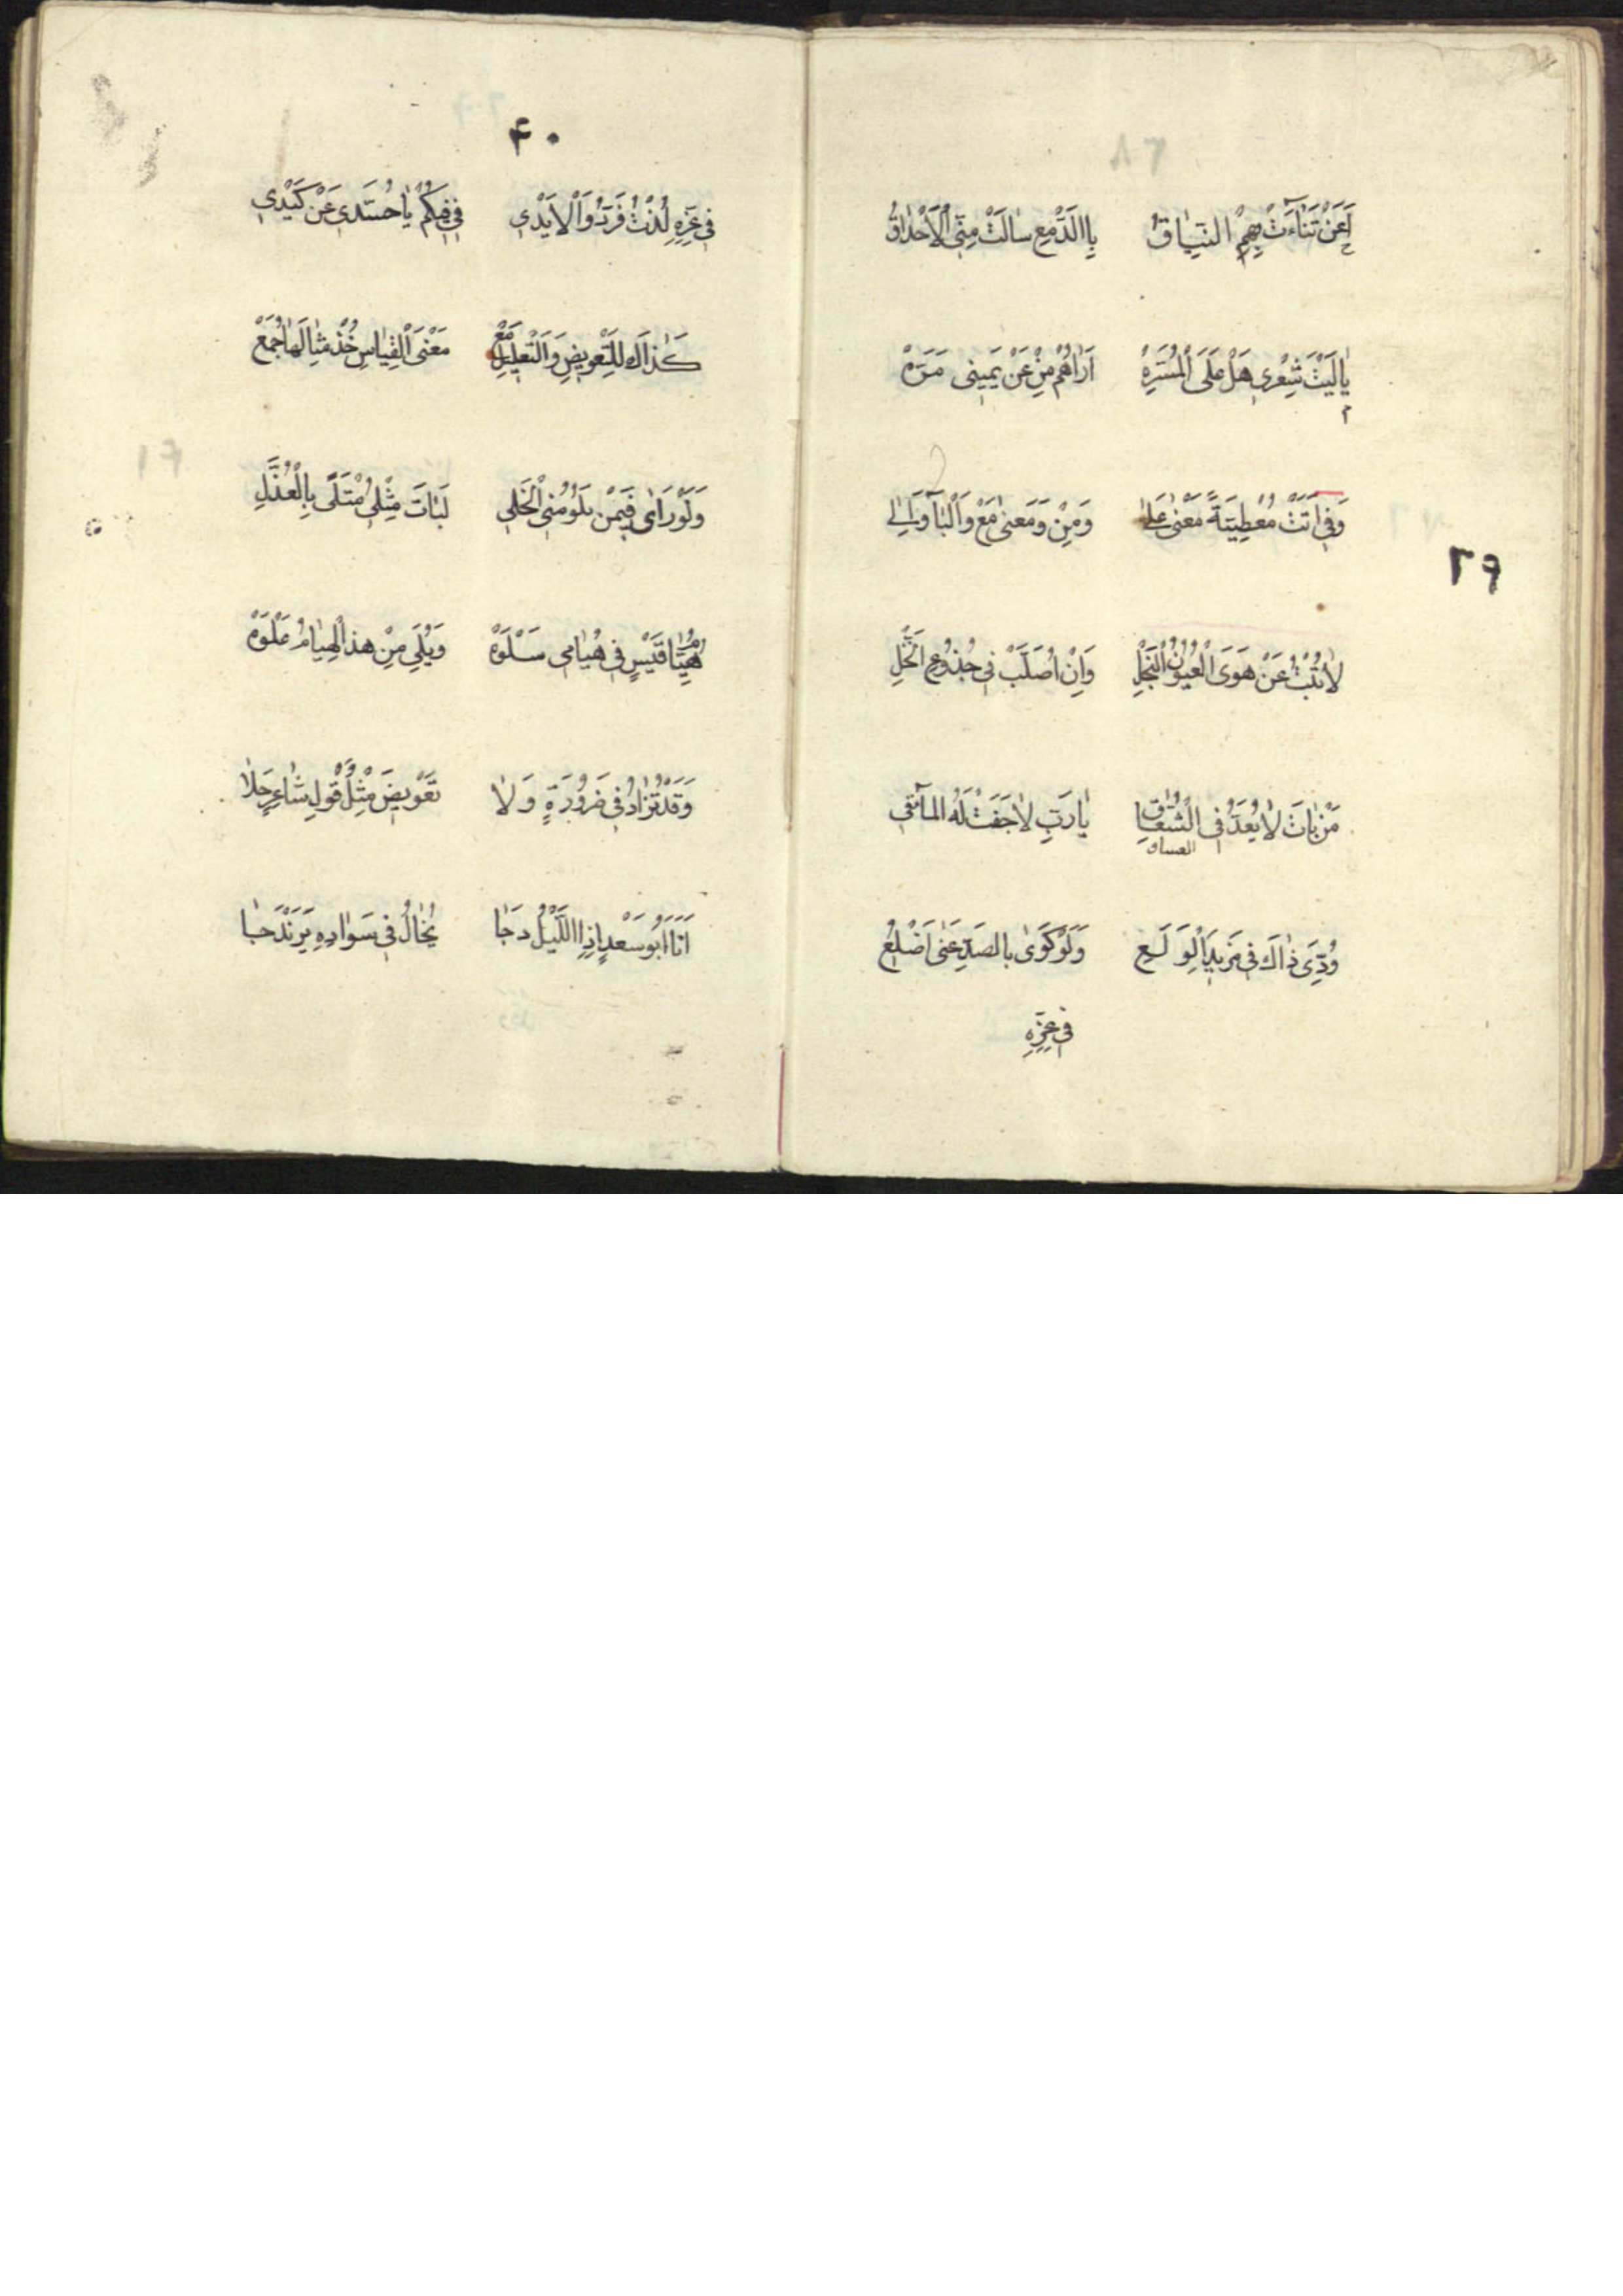 اَعَنْ تَنَآءَتْ بِهِمُ النِّيَاقُ بِاالدَّمْعِ سٰالَتْ مِنِّي الْاَحْدٰاقُ
يٰالَيْتَ شِعْرِي هَلْ عَلَى الْمَسَرَّهْ اَرٰاهُمْ مِنْ عَنْ يَمِينِي مَرَّهْ
وَفِي اَتَتْ مُعْطِيَةً مَعْنٰى عَلٰى وَمِنْ وَمَعنٰى مَعْ وَالْبٰآ وَاِلٰى
٣٩
لاٰتُبْتُ عَنْ هَوَى الْعُيُونِ النُّجْلِ وَاِنْ اُصَلَّبْ فِي جُذُوعِ النَّخْلِ
مَنْ بٰاتَ لاٰيُعَدُّ فِي الْعُشّٰاقِ يٰارَبِّ لاٰجَفَّتْ لَهُ المآقي
العشاق
وُدِّيَ ذٰاكَ فِي مَزِيدِ الْوَلَعِ وَلَوْ كَوٰى بالصَدِّ عَنّٰى اَضْلُعِ
في عِزِّهِ
٤٠
في عِزِّهِ لُذْتُ فَرُدُّوا الْايْدِي فَفِي فِيكُمْ يٰاحُسَّدِي عَنْ كَيْدِي
كَذٰاكَ للتَّعْوِيضِ وَالتَّعْلِيلِ مَعْ مَعْنَى الْقِيٰاسِ خُذْ مِثٰالَهٰا جُمَعْ
وَلَوْ رَاٰى فِيمَنْ يَلُومُنِي الْخَلِي لَبٰاتَ مِثْلِي مُبْتَلًى بِالْعُذَّلِ
هُيٰامُ قَيْسٍ فِي هُيٰامِي سَلْوَهْ وَيْلِيَ مِنْ هذا الْهِيٰامُ مَلْوَهْ
وَقَدْ تُزٰادُ فِي ضَرُورَةٍ وَلاٰ تَعْوِيضَ مِثْلُ قَوْلِ شٰاعِرٍ جَلاٰ
اَنَا اَبُو سَعْدٍ اِذِا اللَّيْلُ دَجٰا يُخٰالُ فِي سَوٰادِهِ يَرَنْدَجٰا